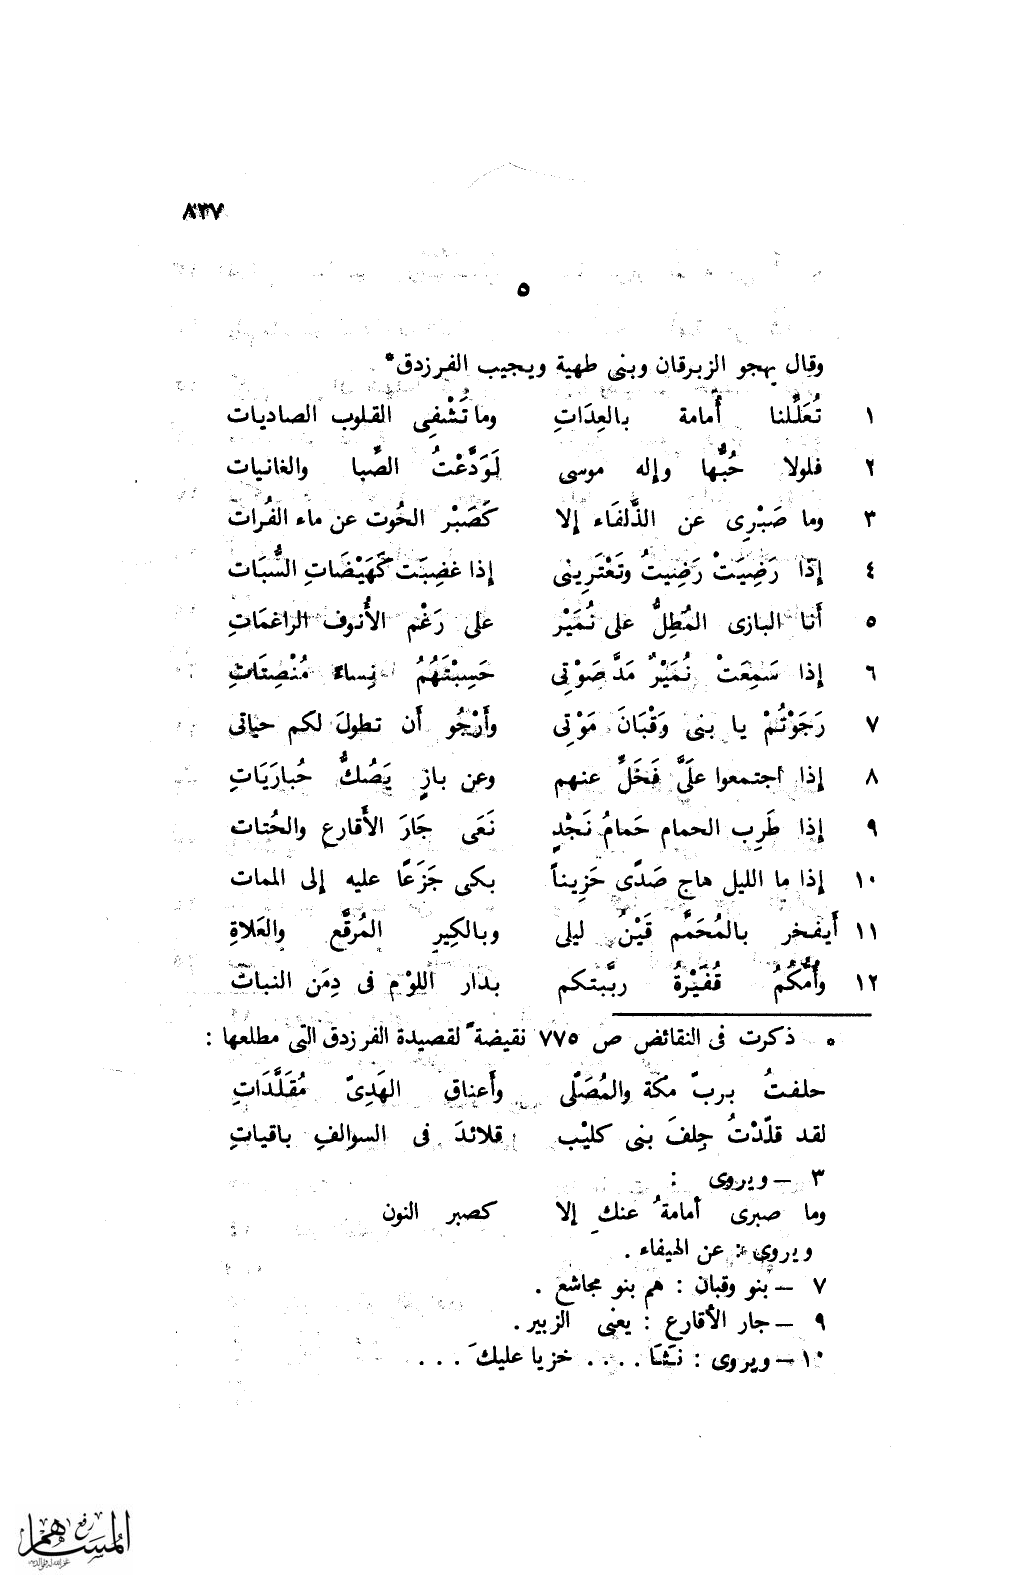 ٨٣٧
٥
وقال يهجو الزبرقان وبنى طهية ويجيب الفرزدق*
١ تُعَلِّلنا أُمامة بالعِدَاتِ وما تَشْفِى القلوب الصاديات
٢ فلولا حُبُّها وإله موسى لَوَدَّعْتُ الصِّبا والغانيات
٣ وما صَبْرِى عن الذَّلفَاء إلا كَصَبْر الحُوت عن ماء الفُرات
٤ إذا رَضِيَتْ رَضِيتُ وتَعْتَرِينى إذا غضِبَت كَهَيْضَاتِ السُّبَات
٥ أنا البازى المُطِلُّ على نُمَيْر على رَغْم الأُنوف الراغمَاتِ
٦ إذا سَمِعَتْ نُمَيْرٌ مَدَّ صَوْتِى حَسِبْتَهُمُ نِساء مُنْصِتَاتِ
٧ رَجَوْتُمْ يا بنى وَقْبَانَ مَوْتِى وأَرْجُو أَن تطولَ لكم حياتى
٨ إذا اجتمعوا علَىَّ فَخَلِّ عنهم وعن بازٍ يَصُكُّ حُبارَيَاتِ
٩ إذا طَرِب الحمام حَمامُ نَجْدٍ نَعَى جَارَ الأَقارع والحُتات
١٠ إذا ما الليل هاج صَدًى حَزِيناً بكى جَزَعًا عليه إلى الممات
١١ أَيفخر بالمُحَمَّم قَيْنُ ليلى وبالكِيرِ المُرقَّع والعَلاةِ
١٢ وأُمُّكُمُ قُفَيْرَةُ ربَّبتكم بدار اللؤم فى دِمَن النبات
* ذكرت فى النقائض ص ٧٧٥ نقيضة لقصيدة الفرزدق التى مطلعها :
حلفتُ بربّ مكة والمُصَلَّى وأَعناق الهَدِىّ مُقَلَّدَاتِ
لقد قلّدْتُ جِلفَ بنى كليْب قلائدَ فى السوالفِ باقياتِ
٣ — ويروى :
وما صبرى أمامةُ عنكِ إلا كصبر النون
ويروى : عن الهيفاء .
٧ — بنو وقبان : هم بنو مجاشع .
٩ — جار الأقارع : يعنى الزبير .
١٠ — ويروى : نَثَا . . . . خزيا عليكَ . . .
المساهم